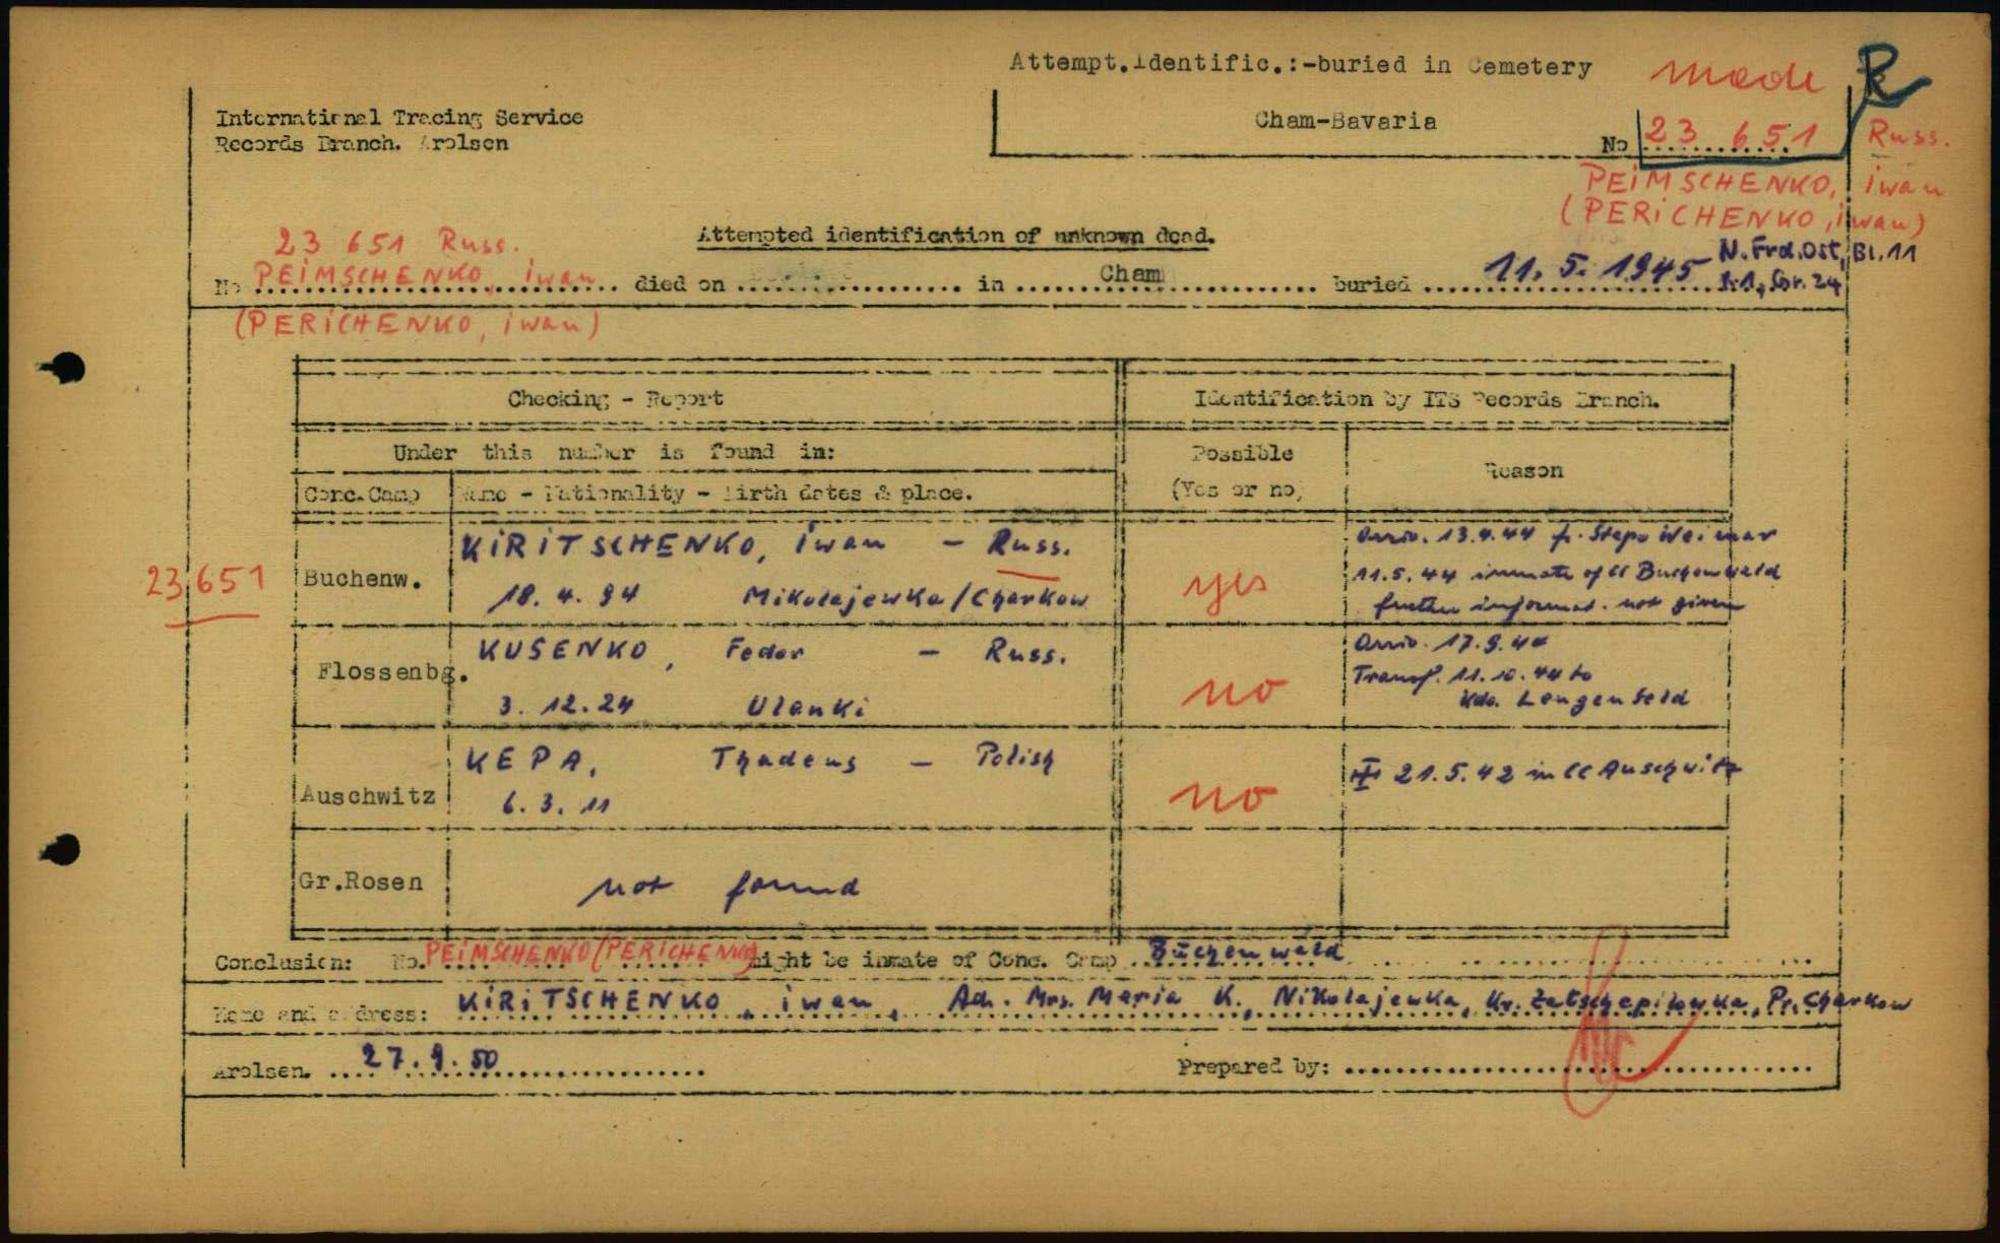 Attempt.Identific.:-buried in Cemetery made
Cham-Bavaria
International Tracing Service
Records Branch. Arolsen
No 23 651 Russ.
PEIMSCHENKO, iwan
(PERICHENKO, iwan)
Attempted identification of unknown dead.
23 651 Russ.
N. Frd. Ost, Bl. 11
No PEIMSCHENKO, iwan died on in Cham buried 11. 5. 1945 R.1, Gr. 24
(PERICHENKO, iwan)
Checking - Report Identification by ITS Records Branch.
Under this number is found in: Possible (Yes or no) Reason
Conc.Camp Name - Nationality - Birth dates & place.
23,651
Buchenw. KIRITSCHENKO, iwan - Russ.
18. 4. 94 Mikolajewka/Charkow
yes
Arriv. 13.4.44 fr. Stapo Weimar
11.5.44 inmate of CC Buchenwald
further informat. not given
Flossenbg. KUSENKO, Fedor - Russ.
3. 12. 24 Ulanki
no
Arriv. 17.9.44
Transf. 11.10.44 to
Kdo. Lengenfeld
Auschwitz KEPA, Thadeus - Polish
6. 3. 11
no
21.5.42 in CC Auschwitz
Gr.Rosen not found
Conclusion: No. PEIMSCHENKO (PERICHENKO) might be inmate of Conc. Camp Buchenwald
Name and address: KIRITSCHENKO, iwan, Ad. Mrs. Maria K., Nikolajewka, Kr. Zatschepilowka, Pr. Charkow
Arolsen. 27. 9. 50 Prepared by: